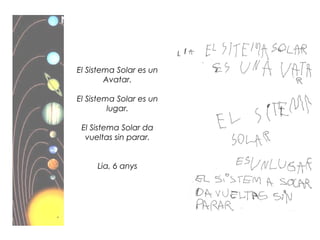 El Sistema Solar es un
Avatar.
El Sistema Solar es un
lugar.
El Sistema Solar da
vueltas sin parar.
Lia, 6 anys
LIA EL SITEMA SOLAR
ES UNA VATA
R
EL SITEMA
SOLAR
ES UN LUGAR
EL SISTEMA SOLAR
DA VUELTAS SIN
PARAR